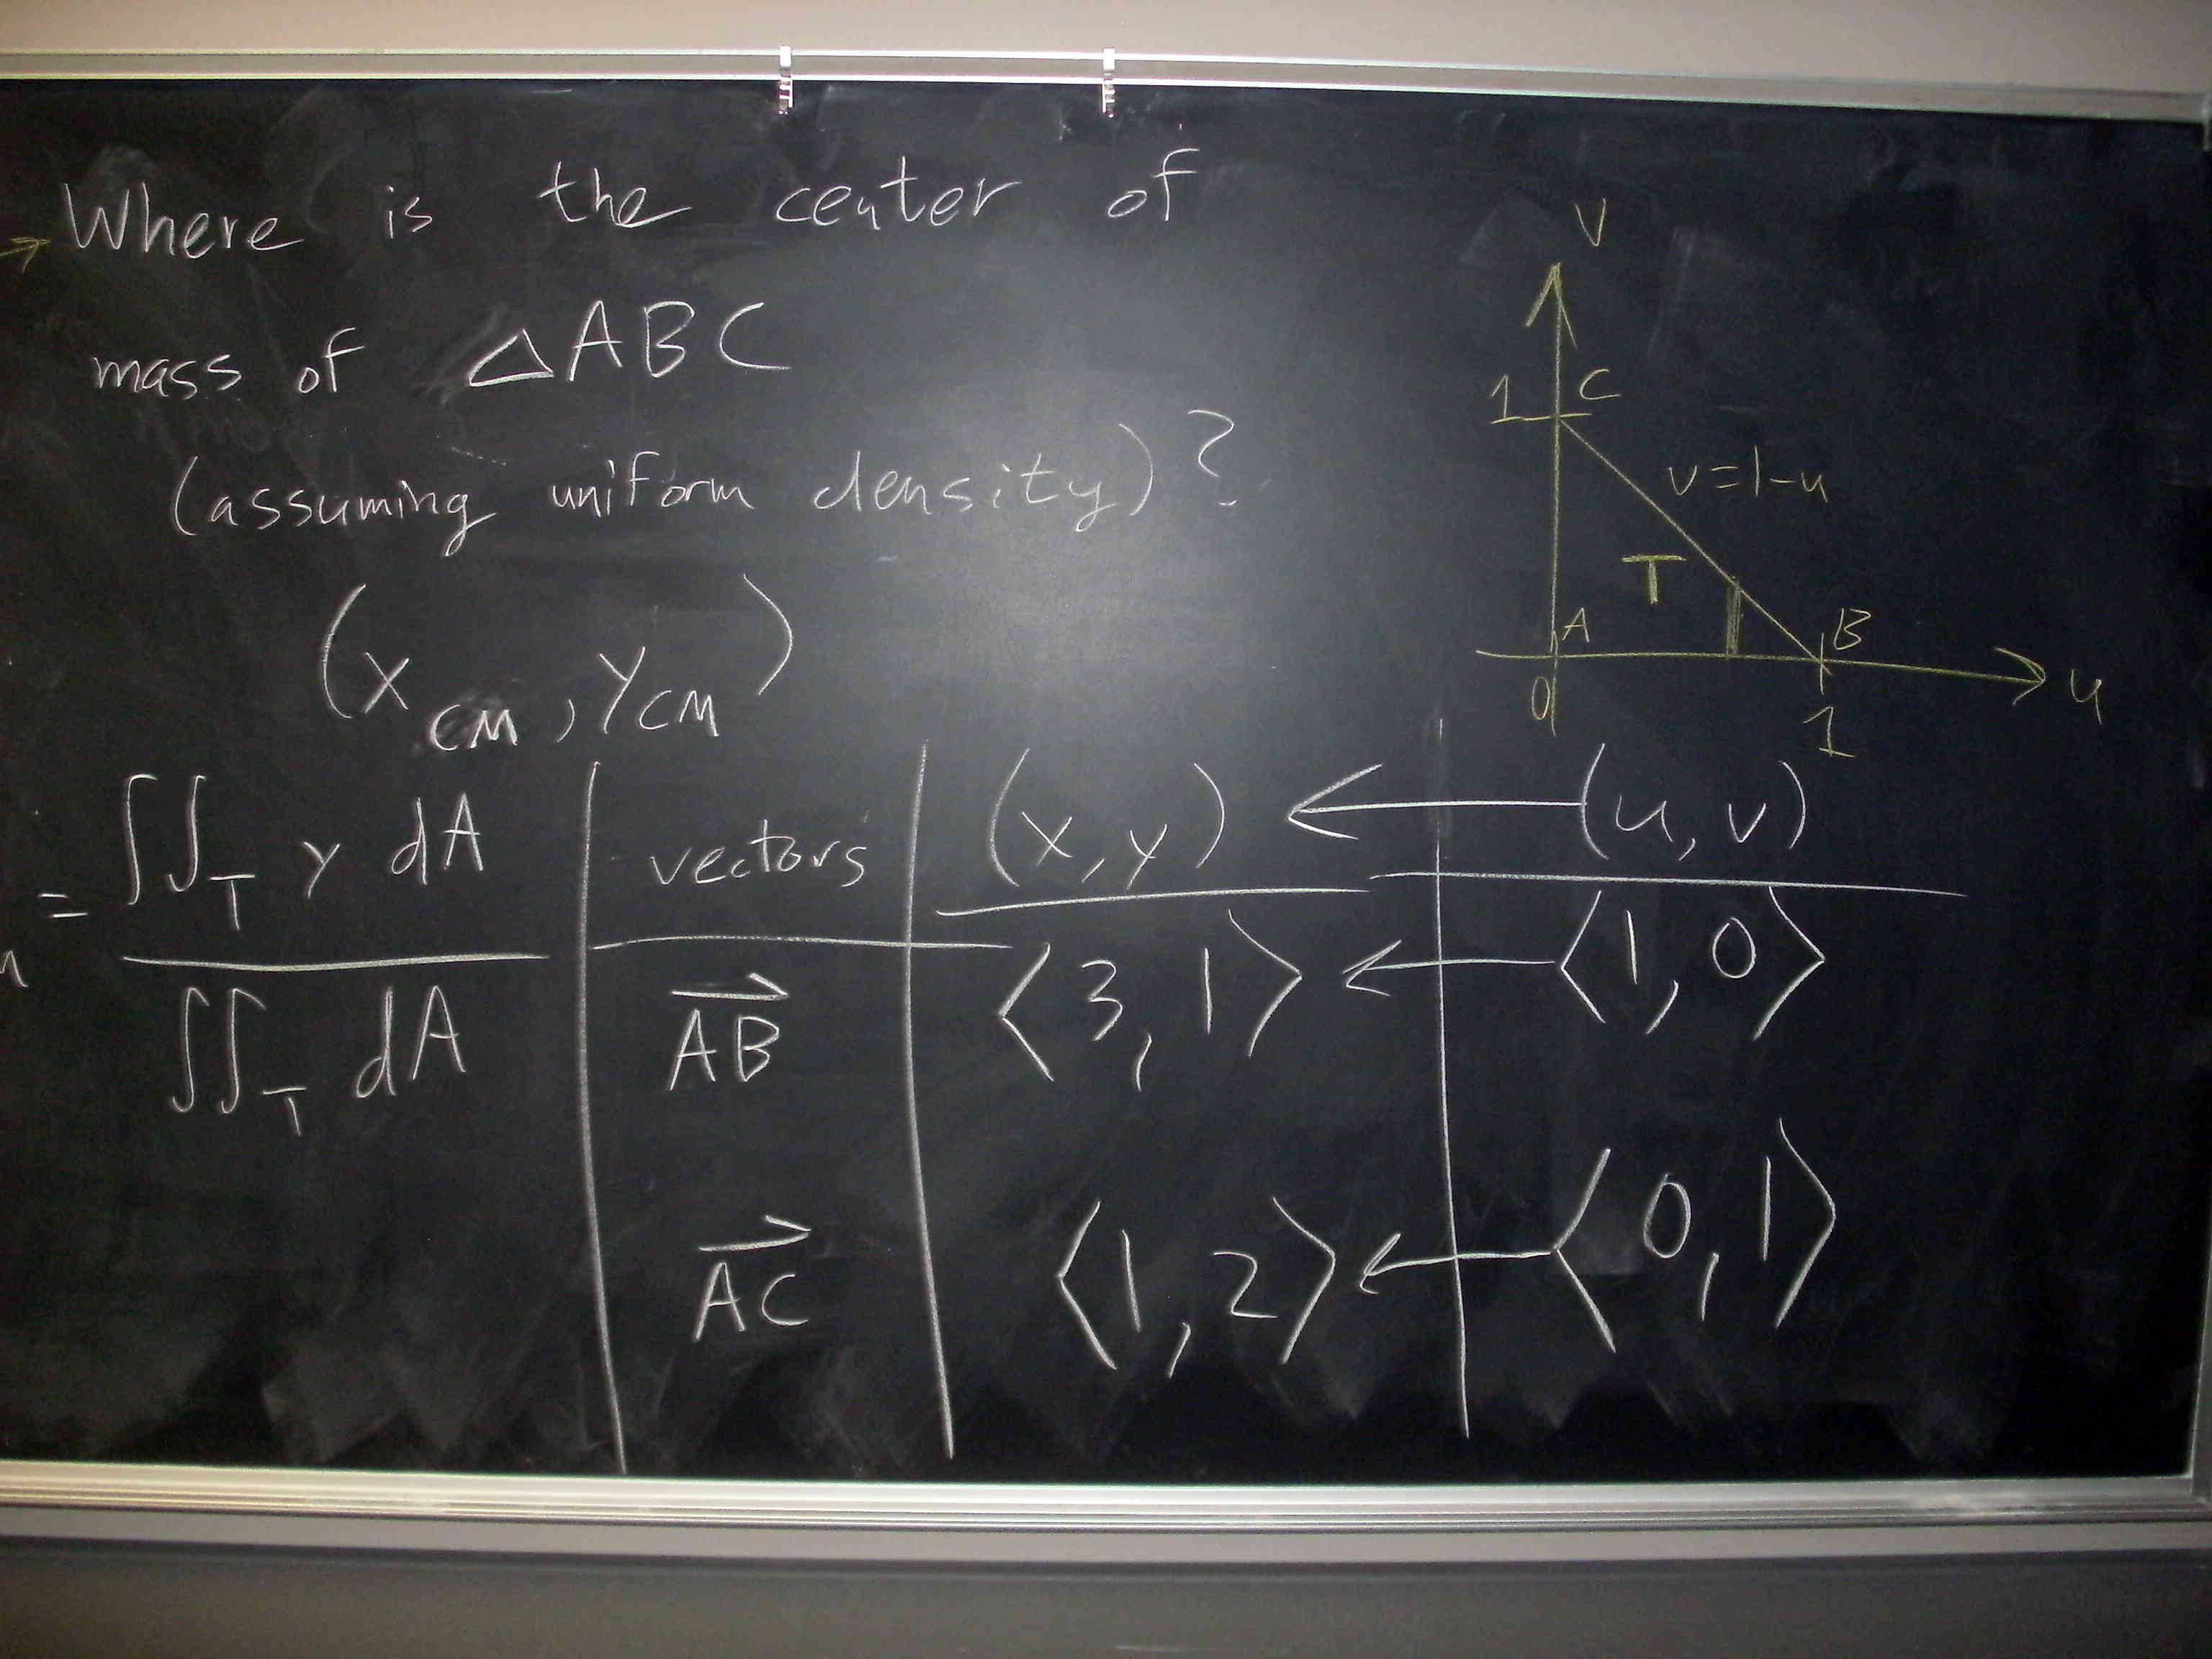 Where is the center of
mass of △ABC
(assuming uniform density)?
(x_CM, y_CM)
= ∬_T y dA / ∬_T dA
v
1 C
v=1-u
T
A B
0 1 u
vectors | (x,y) ← (u,v)
\overrightarrow{AB} | ⟨3, 1⟩ ← ⟨1, 0⟩
\overrightarrow{AC} | ⟨1, 2⟩ ← ⟨0, 1⟩